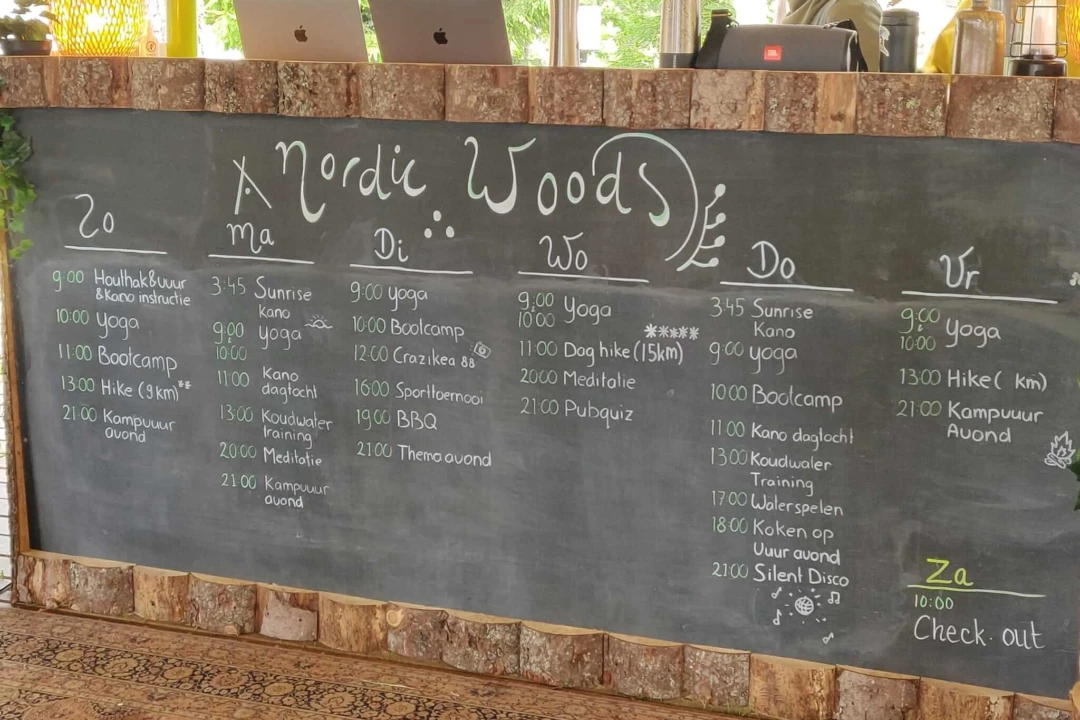 Nordic Woods
Zo
9:00 Houthak&vuur
&kano instructie
10:00 Yoga
11:00 Bootcamp
13:00 Hike (9km)**
21:00 Kampvuur
avond
Ma
3:45 Sunrise
kano
9:00 yoga
10:00
11:00 Kano
dagtocht
13:00 Koudwater
training
20:00 Meditatie
21:00 Kampvuur
avond
Di
9:00 yoga
10:00 Bootcamp
12:00 Crazikea 88
16:00 Sporttoernooi
19:00 BBQ
21:00 Thema avond
Wo
9:00 Yoga
10:00
*****
11:00 Dag hike (15km)
20:00 Meditatie
21:00 Pubquiz
Do
3:45 Sunrise
Kano
9:00 yoga
10:00 Bootcamp
11:00 Kano dagtocht
13:00 Koudwater
Training
17:00 Waterspelen
18:00 Koken op
Vuur avond
21:00 Silent Disco
Vr
9:00 Yoga
10:00
13:00 Hike ( km)
21:00 Kampvuur
Avond
Za
10:00
Check-out
JBL